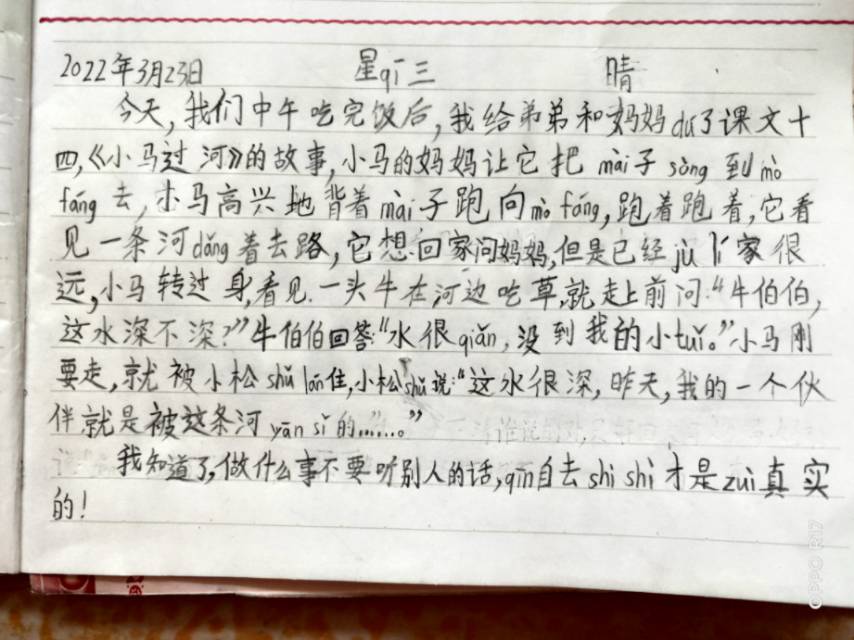 2022年3月23日 星qī三 晴
今天,我们中午吃完饭后,我给弟弟和妈妈dú了课文十
四,《小马过河》的故事,小马的妈妈让它把mài子sòng到mò
fáng去,小马高兴地背着mài子跑向mò fáng,跑着跑着,它看
见一条河dǎng着去路,它想回家问妈妈,但是已经jù lí家很
远,小马转过身,看见一头牛在河边吃草,就走上前问:“牛伯伯,
这水深不深?”牛伯伯回答:“水很qiǎn,没到我的小tuǐ。”小马刚
要走,就被小松shǔ lán住,小松shǔ说:“这水很深,昨天,我的一个伙
伴就是被这条河yān sǐ的……。”
我知道了,做什么事不要听别人的话,qīn自去shì shì才是zuì真实
的!
OPPO R17